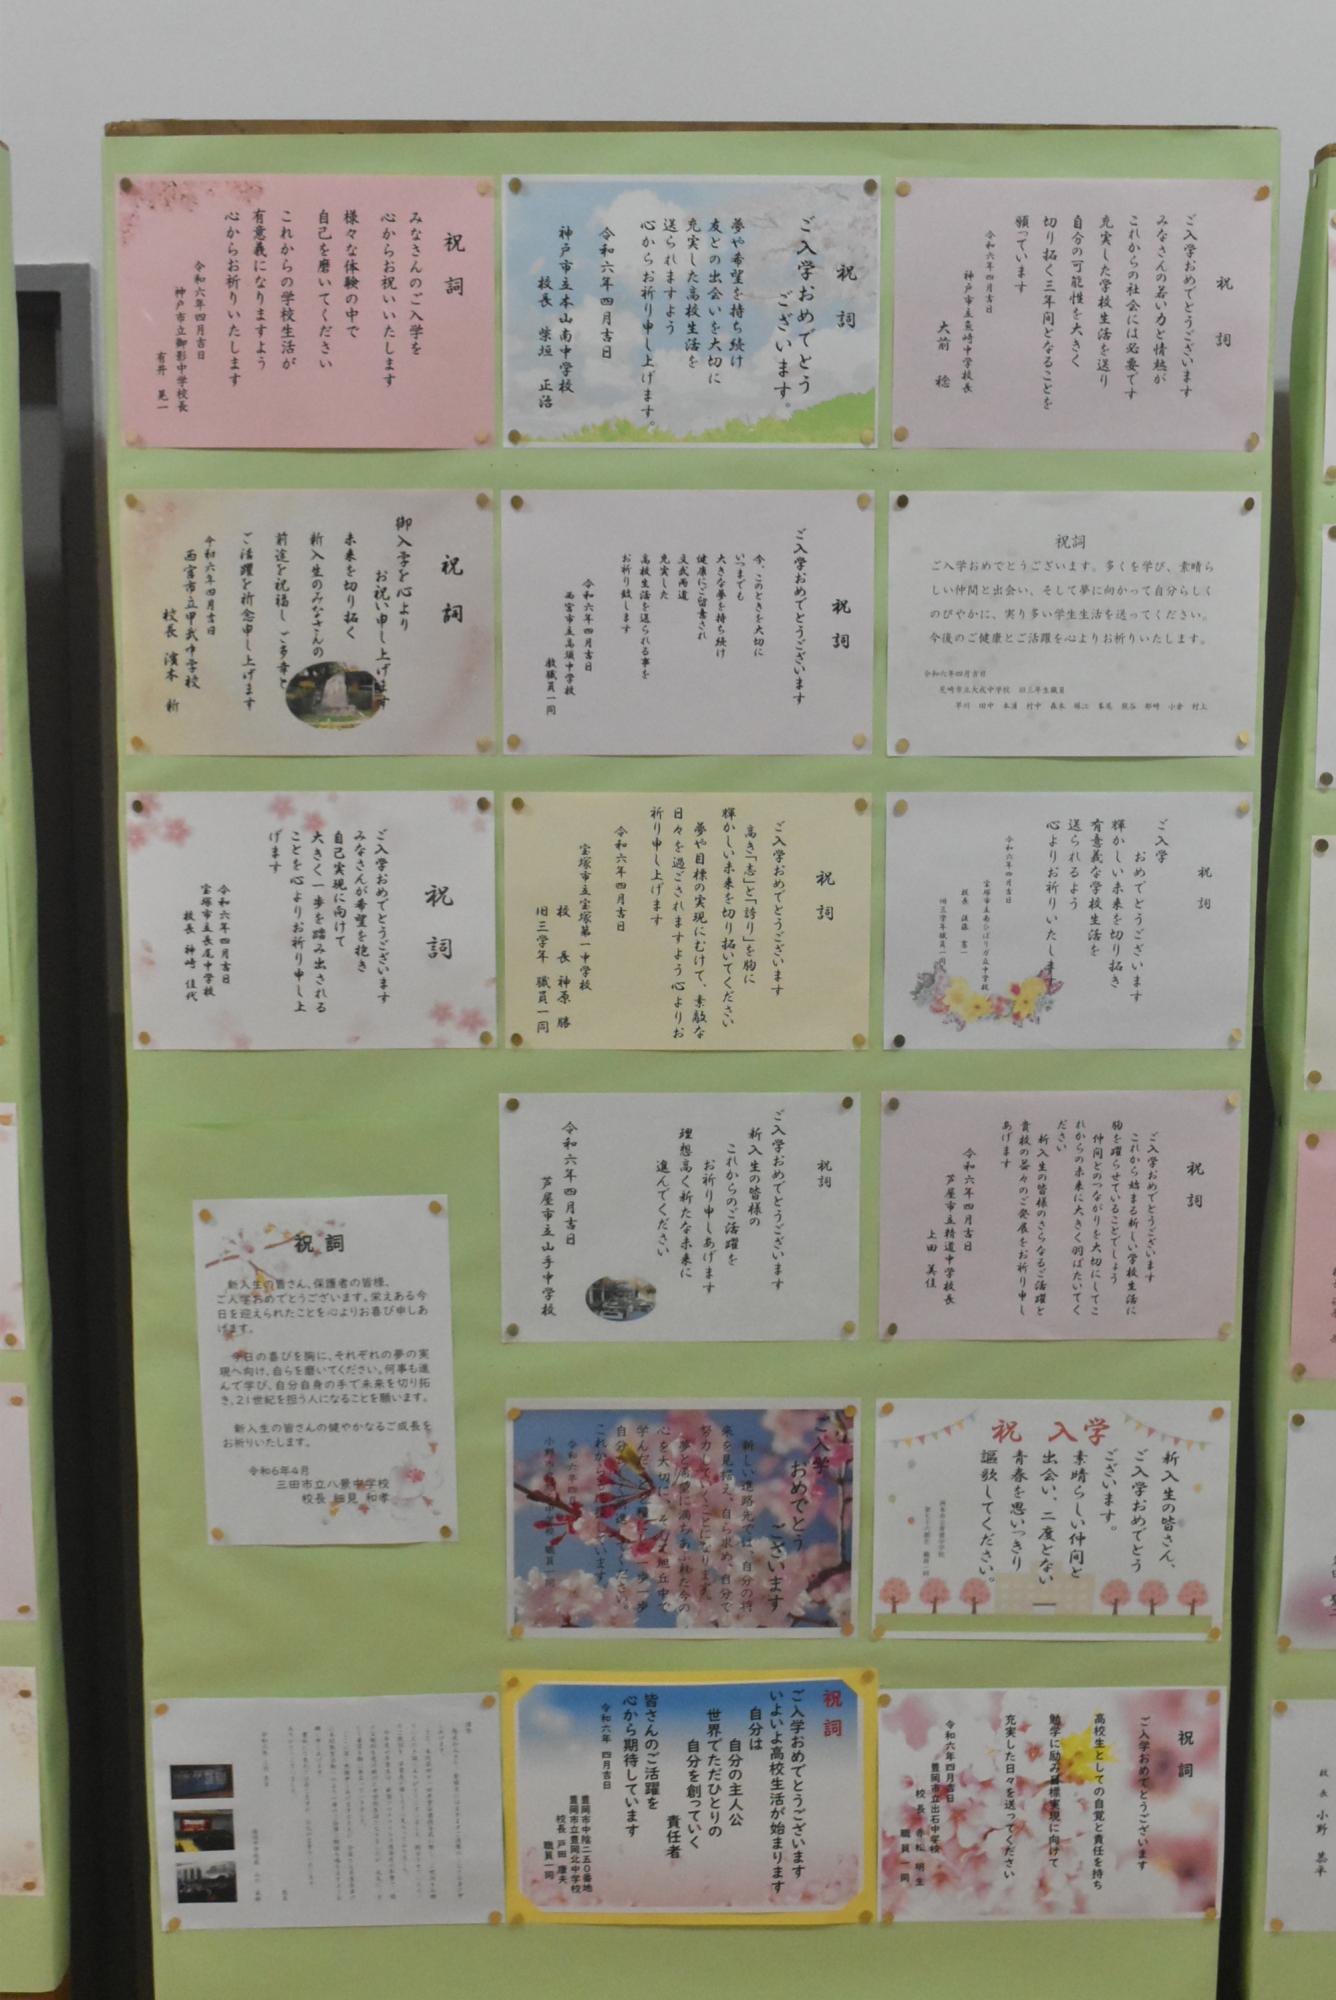 祝詞
ご入学おめでとうございます
みなさんの若い力と情熱が
これからの社会には必要です
充実した学校生活を送り
自分の可能性を大きく
切り拓く三年間となることを
願っています
令和六年四月吉日
神戸市立魚崎中学校長
大前 稔
祝詞
ご入学おめでとう
ございます。
夢や希望を持ち続け
友との出会いを大切に
充実した高校生活を
送られますよう
心からお祈り申し上げます。
令和六年四月吉日
神戸市立本山南中学校
校長 柴垣 正治
祝詞
みなさんのご入学を
心からお祝いいたします
様々な体験の中で
自己を磨いてください
これからの学校生活が
有意義になりますよう
心からお祈りいたします
令和六年四月吉日
神戸市立御影中学校長
有井 晃一
祝詞
ご入学おめでとうございます。多くを学び、素晴ら
しい仲間と出会い、そして夢に向かって自分らしく
のびやかに、実り多い学生生活を送ってください。
今後のご健康とご活躍を心よりお祈りいたします。
令和六年四月吉日
尼崎市立大成中学校 旧三年生職員
早川 田中 本浦 村中 森本 堀江 峯尾 熊谷 都崎 小倉 村上
祝詞
ご入学おめでとうございます
今、このときを大切に
いつまでも
大きな夢を持ち続け
健康にご留意され
文武両道
充実した
高校生活を送られる事を
お祈り致します
令和六年四月吉日
西宮市立高須中学校
教職員一同
祝詞
御入学を心より
お祝い申し上げます
未来を切り拓く
新入生のみなさんの
前途を祝福し ご多幸と
ご活躍を祈念申し上げます
令和六年四月吉日
西宮市立甲武中学校
校長 濱本 新
祝詞
ご入学
おめでとうございます
輝かしい未来を切り拓き
有意義な学校生活を
送られるよう
心よりお祈りいたします
令和六年四月吉日
宝塚市立南ひばりガ丘中学校
旧三学年職員一同
祝詞
ご入学おめでとうございます
高き「志」と「誇り」を胸に
輝かしい未来を切り拓いてください
夢や目標の実現にむけて、素敵な
日々を過ごされますよう心よりお
祈り申し上げます
令和六年四月吉日
宝塚市立宝塚第一中学校
校長 神原 勝
旧三学年 職員一同
祝詞
ご入学おめでとうございます
みなさんが希望を抱き
自己実現に向けて
大きく一歩を踏み出される
ことを心よりお祈り申し上
げます
令和六年四月吉日
宝塚市立長尾中学校
校長 神崎 佳代
祝詞
ご入学おめでとうございます
これから始まる新しい学校生活に
胸を躍らせていることでしょう
仲間とのつながりを大切にしてこ
れからの未来に大きく羽ばたいてく
ださい
新入生の皆様のさらなるご活躍と
貴校の益々のご発展をお祈り申し
あげます
令和六年四月吉日
芦屋市立精道中学校長
上田 美佳
祝詞
ご入学おめでとうございます
新入生の皆様の
これからのご活躍を
お祈り申しあげます
理想高く新たな未来に
進んでください
令和六年四月吉日
芦屋市立山手中学校
祝詞
新入生の皆さん、保護者の皆様、
ご入学おめでとうございます。栄えある今
日を迎えられたことを心よりお喜び申しあ
げます。
今日の喜びを胸に、それぞれの夢の実
現へ向け、自らを磨いてください。何事も進
んで学び、自分自身の手で未来を切り拓
き、21世紀を担う人になることを願います。
新入生の皆さんの健やかなるご成長を
お祈りいたします。
令和6年4月
三田市立八景中学校
校長 細見 和孝
祝 入学
新入生の皆さん、
ご入学おめでとう
ございます。
素晴らしい仲間と
出会い、二度とない
青春を思いっきり
謳歌してください。
ご入学
おめでとう
ございます
新しい進路先では、自分の将
来を見据え、自ら求め、自分で
努力していくことになります。
夢と希望に満ちあふれた今の
心を大切に、そして旭丘中で
祝詞
ご入学おめでとうございます
高校生としての自覚と責任を持ち
勉学に励み目標実現に向けて
充実した日々を送ってください
令和六年四月吉日
豊岡市立出石中学校
校長 赤松 明生
職員一同
祝詞
ご入学おめでとうございます
いよいよ高校生活が始まります
自分は
自分の主人公
世界でただひとりの
自分を創っていく
責任者
皆さんのご活躍を
心から期待しています
令和六年 四月吉日
豊岡市中陰二五〇番地
豊岡市立豊岡北中学校
校長 戸田 康夫
職員一同
校長 小野 恭平